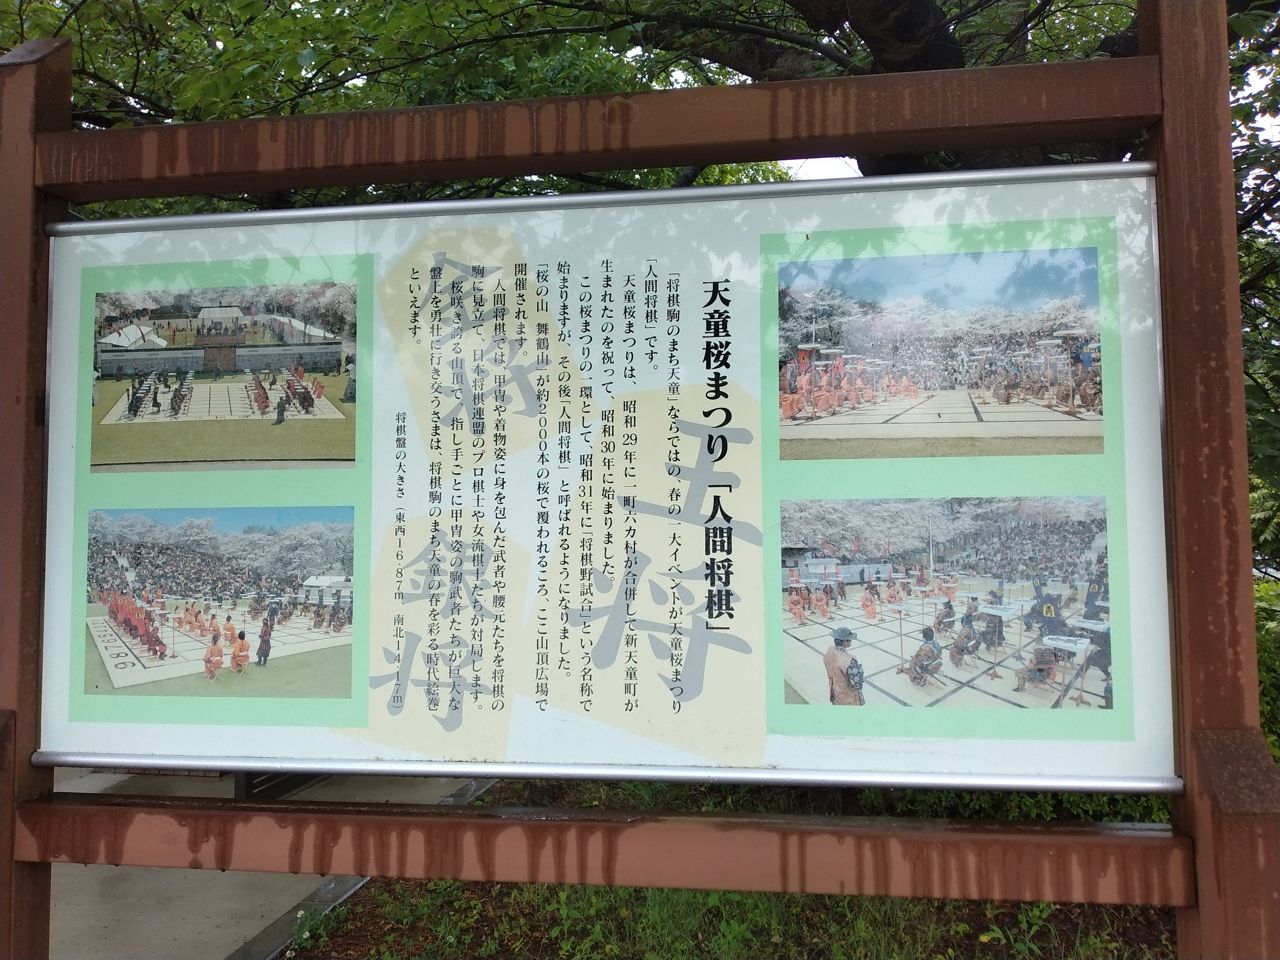 天童桜まつり「人間将棋」
「将棋駒のまち天童」ならではの、春の一大イベントが天童桜まつり
「人間将棋」です。
天童桜まつりは、昭和29年に一町六カ村が合併して新天童町が
生まれたのを祝って、昭和30年に始まりました。
この桜まつりの一環として、昭和31年に「将棋野試合」という名称で
始まりますが、その後「人間将棋」と呼ばれるようになりました。
「桜の山 舞鶴山」が約2000本の桜で覆われるころ、ここ山頂広場で
開催されます。
人間将棋では、甲冑や着物姿に身を包んだ武者や腰元たちを将棋の
駒に見立て、日本将棋連盟のプロ棋士や女流棋士たちが対局します。
桜咲き誇る山頂で、指し手ごとに甲冑姿の駒武者たちが巨大な
盤上を勇壮に行き交うさまは、将棋駒のまち天童の春を彩る時代絵巻
といえます。
将棋盤の大きさ(東西16.87m、南北14.17m)
王将
金将
銀将